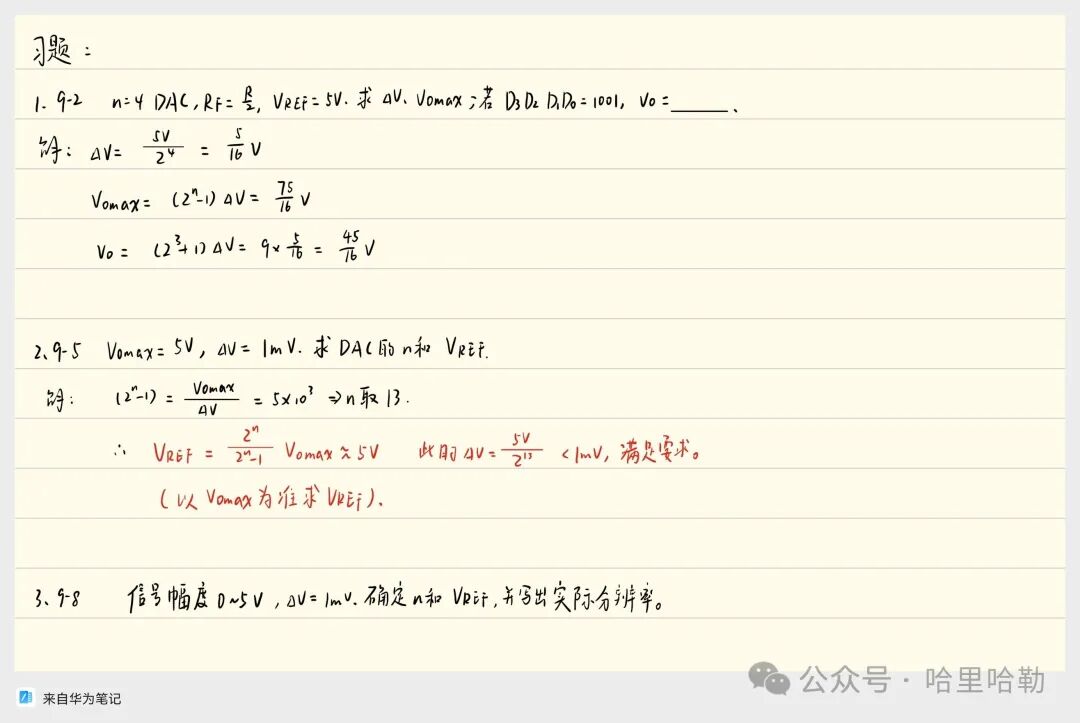 习题：
1. 9-2 n=4 DAC, RF=R/2, VREF=5V. 求 ΔV、Vomax；若 D3D2D1D0=1001, Vo=______.
解: ΔV= 5V/2^4 = 5/16 V
Vomax= (2^n-1) ΔV= 75/16 V
Vo= (2^3+1) ΔV= 9×5/16 = 45/16 V
2、9-5 Vomax=5V, ΔV=1mV. 求 DAC的 n和 VREF.
解: (2^n-1) = Vomax/ΔV = 5×10^3 ⇒ n取 13.
∴ VREF = 2^n/(2^n-1) Vomax≈5V 此时 ΔV= 5V/2^13 <1mV, 满足要求。
(以 Vomax为准求 VREF).
3、9-8 信号幅度 0~5V, ΔV=1mV. 确定 n和 VREF, 并写出实际分辨率。
来自华为笔记
公众号·哈里哈勒